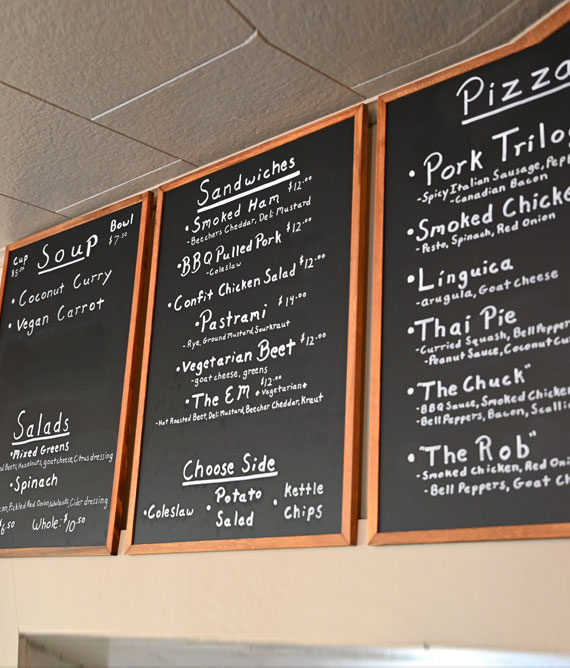 Cup
Soup
Bowl
$5.50
$7.50
• Coconut Curry
• Vegan Carrot
Salads
• Mixed Greens
Beets, Hazelnuts, goat cheese, Citrus dressing
• Spinach
Pickled Red Onion, Walnuts, Cider dressing
$6.50 Whole: $10.50
Sandwiches
• Smoked Ham $12.00
- Beechers Cheddar, Deli Mustard
• BBQ Pulled Pork $12.00
- Coleslaw
• Confit Chicken Salad $12.00
• Pastrami $14.00
- Rye, Ground Mustard, Sourkraut
• Vegetarian Beet $12.00
- goat cheese, greens
• The EM $12.00
* Vegetarian *
- Hot Roasted Beet, Deli Mustard, Beecher Cheddar, Kraut
Choose Side
• Coleslaw • Potato Salad • Kettle Chips
Pizza
• Pork Trilo
- Spicy Italian Sausage, Pep
- Canadian Bacon
• Smoked Chicke
- Pesto, Spinach, Red Onion
• Linguica
- arugula, Goat cheese
• Thai Pie
- Curried Squash, Bell Pepper
- Peanut Sauce, Coconut Cu
• "The Chuck"
- BBQ Sauce, Smoked Chicken
- Bell Peppers, Bacon, Scalli
• "The Rob"
- Smoked chicken, Red Oni
- Bell Peppers, Goat Ch